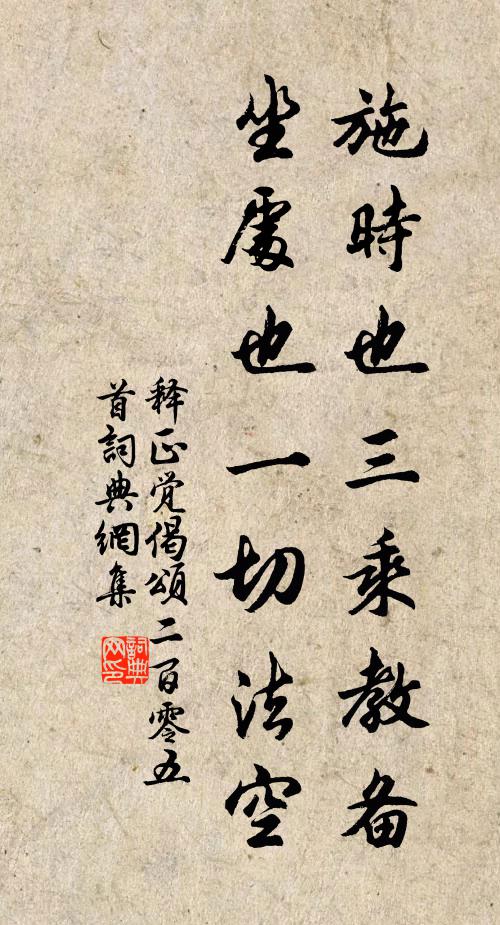 施時也三乘教备
坐處也一切法空
释正觉偈頌二百零五
首詞典網集
詞典网印